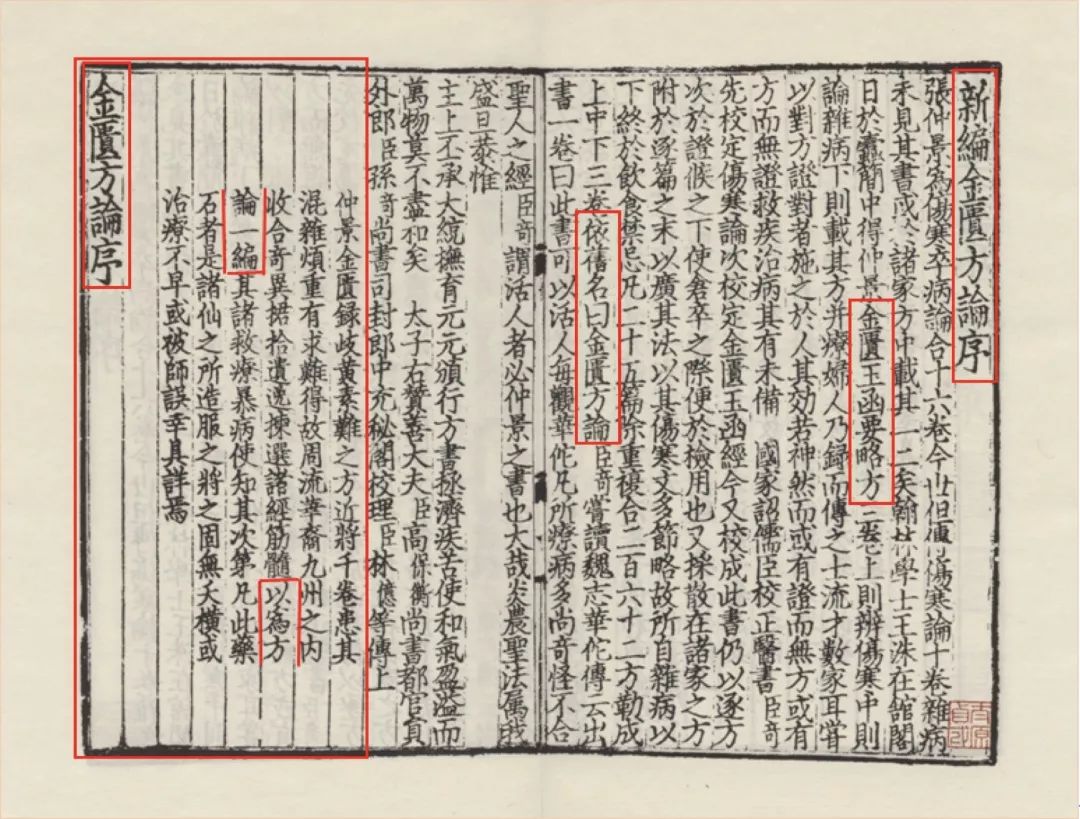 新編金匱方論序
張仲景為傷寒卒病論合十六卷今世但傳傷寒論十卷雜病
未見其書或於諸家方中載其一二矣翰林學士王洙在館閣
日於蠹簡中得仲景金匱玉函要略方三卷上則辨傷寒中則
論雜病下則載其方并療婦人乃錄而傳之士流才數家耳嘗
以對方證對者施之於人其効若神然而或有證而無方或有
方而無證救疾治病其有未備　國家詔儒臣校正醫書臣奇
先校定傷寒論次校定金匱玉函經今又校成此書仍以逐方
次於證候之下使倉卒之際便於檢用也又採散在諸家之方
附於逐篇之末以廣其法以其傷寒文多節略故所自雜病以
下終於飲食禁忌凡二十五篇除重複合二百六十二方勒成
上中下三卷依舊名曰金匱方論臣奇嘗讀魏志華佗傳云出
書一卷曰此書可以活人每觀華佗凡所療病多尚奇怪不合
聖人之經臣奇謂活人者必仲景之書也大哉炎農聖法属我
盛旦恭惟
主上丕承大統撫育元元頒行方書拯濟疾苦使和氣盈溢而
萬物莫不盡和矣　太子右贊善大夫臣高保衡尚書都官員
外郎臣孫奇尚書司封郎中充秘閣校理臣林億等傳上
仲景金匱録岐黄素難之方近將千卷患其
混雜煩重有求難得故周流華裔九州之內
收合奇異捃拾遺逸揀選諸經筋髓以為方
論一編其諸救療暴病使知其次第凡此藥
石者是諸仙之所造服之將之固無夭横或
治療不早或被師誤幸具詳焉
金匱方論序